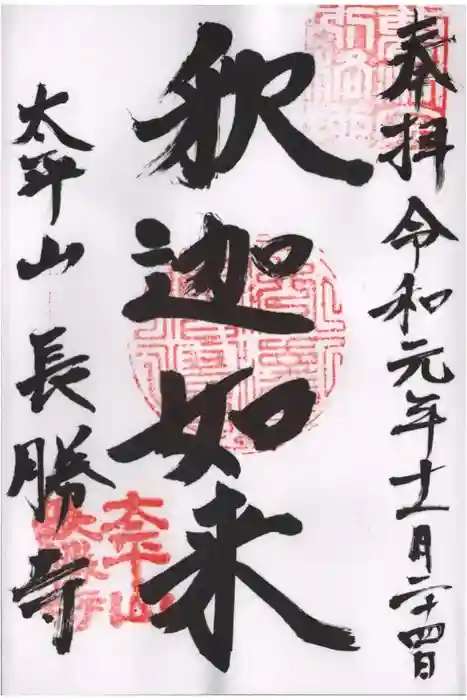 奉拝 令和元年十一月二十四日
釈迦如来
太平山 長勝寺
太平山